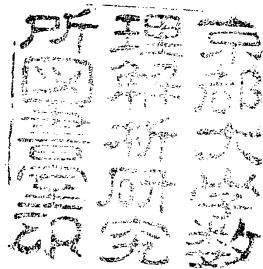 京都大學数
理解析研究
所図書室印